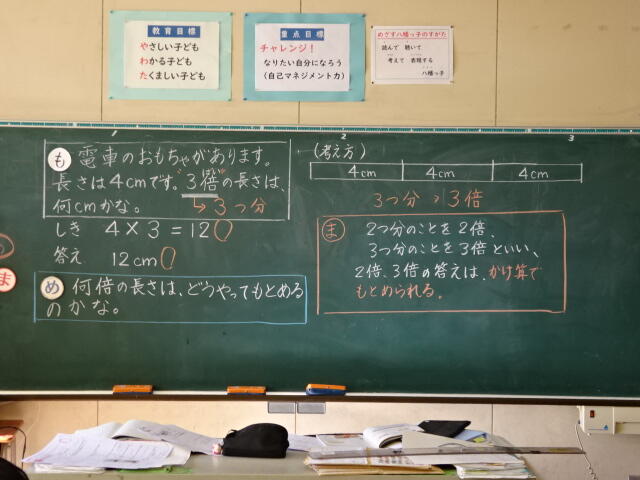 教育目標
やさしい子ども
わかる子ども
たくましい子ども
重点目標
チャレンジ!
なりたい自分になろう
(自己マネジメント力)
めざす八幡っ子のすがた
読んで 聴いて
考えて 表現する
八幡っ子
1
2
3
も 電車のおもちゃがあります。
長さは4cmです。"3倍"の長さは、
何cmかな。 ↳3つ分
しき 4×3=12
答え 12cm
め 何倍の長さは、どうやってもとめる
のかな。
(考え方)
4cm 4cm 4cm
3つ分→3倍
ま 2つ分のことを2倍、
3つ分のことを3倍といい、
2倍、3倍の答えは、かけ算で
もとめられる。
ま